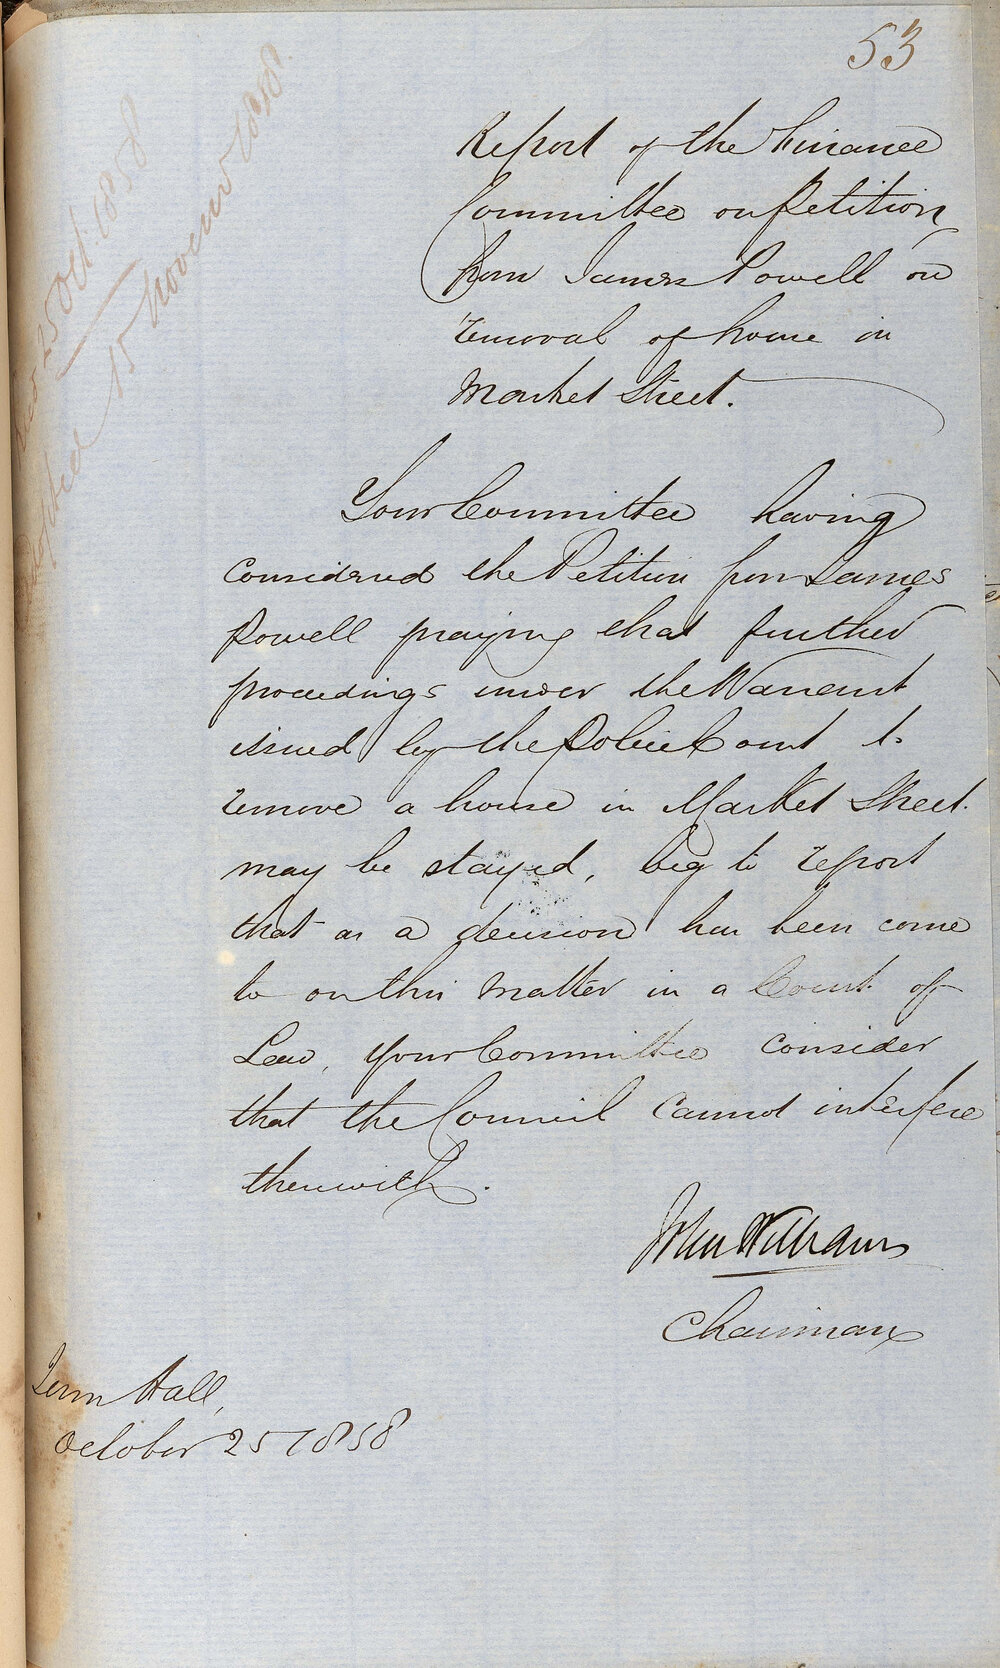 53
Report of the Finance
Committee on Petition
from James Powell on
removal of house in
Market Street.
Your Committee having
considered the Petition from James
Powell praying that further
proceedings under the Warrant
issued by the Police Court to
remove a house in Market Street
may be stayed, beg to report
that as a decision has been come
to on this matter in a Court of
Law, Your Committee consider
that the Council cannot interfere
therewith.
John Williams
Chairman
Town Hall,
October 25 / 1858
25 Oct. 1858
Adopted 15 November 1858.